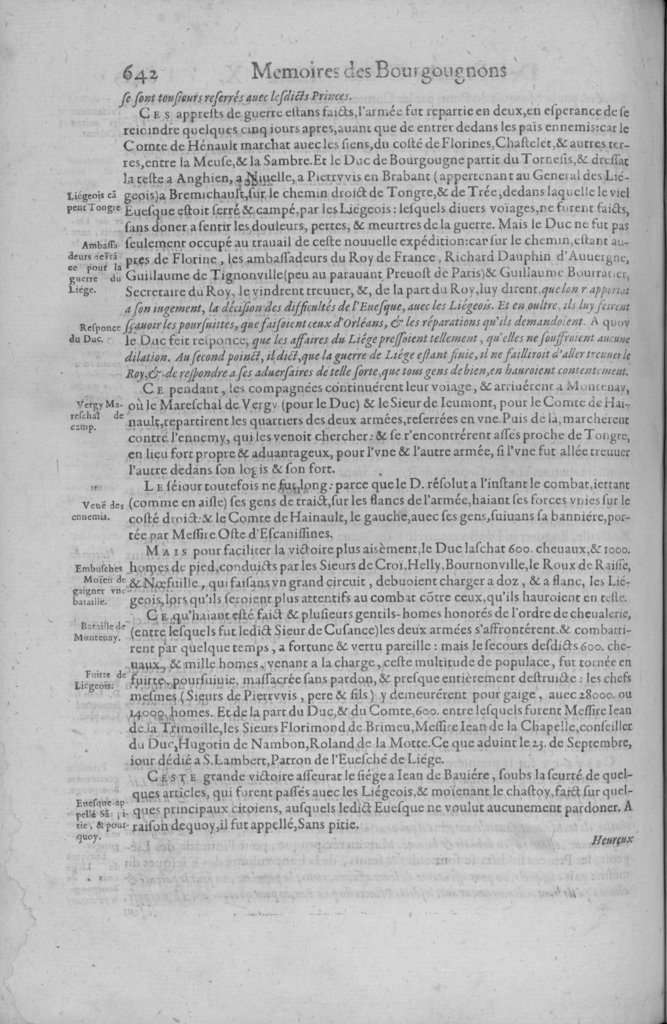 642 Memoires des Bourgougnons
se sont tousiours referrés auec lesdicts Princes.
CES apprests de guerre estans faicts, l'armée fut repartie en deux, en esperance de se
reioindre quelques cinq iours apres, auant que de entrer dedans les païs ennemis: car le
Comte de Hénault marchat auec les siens, du costé de Florines, Chastelet, & autres ter-
res, entre la Meuse, & la Sambre. Et le Duc de Bourgougne partit du Tornesis, & dressat
la teste a Anghien, a Niuelle, a Pierrvvis en Brabant (appertenant au General des Lié-
geois) a Bremichault, sur le chemin droict de Tongre, & de Trée, dedans laquelle le viel
Liégeois cã
pent Tongre
Euesque estoit serré & campé, par les Liégeois: lesquels diuers voiages, ne furent faicts,
sans doner a sentir les douleurs, pertes, & meurtres de la guerre. Mais le Duc ne fut pas
seulement occupé au trauail de ceste nouuelle expédition: car sur le chemin, estant au-
pres de Florine, les ambassadeurs du Roy de France, Richard Dauphin d'Auuergne,
Guillaume de Tignonville (peu au parauant Preuost de Paris) & Guillaume Bourratier,
Secretaire du Roy, le vindrent treuuer, &, de la part du Roy, luy dirent, que lon r'apportat
Ambassa
deurs de Frã
ce pour la
guerre du
Liége.
a son iugement, la décision des difficultés de l'Euesque, auec les Liégeois. Et en oultre, ils luy feirent
sçauoir les poursuittes, que faisoient ceux d'Orléans, & les réparations qu'ils demandoient. A quoy
le Duc feit responce, que les affaires du Liége pressoient tellement, qu'elles ne souffroient aucune
Responce
du Duc.
dilation. Au second poinct, il dict, que la guerre de Liége estant finie, il ne failliroit d'aller treuuer le
Roy, & de respondre a ses aduersaires de telle sorte, que tous gens de bien, en hauroient contentement.
CE pendant, les compagnées continuérent leur voiage, & arriuérent a Montenay,
où le Mareschal de Vergy (pour le Duc) & le Sieur de Ieumont, pour le Comte de Hai-
nault, repartirent les quartiers des deux armées, referrées en vne. Puis de là, marchérent
Vergy Ma-
reschal de
camp.
contre l'ennemy, qui les venoit chercher: & se r'encontrérent assés proche de Tongre,
en lieu fort propre & aduantageux, pour l'vne & l'autre armée, si l'vne fut allée treuuer
l'autre dedans son logis & son fort.
LE séiour toutefois ne fut long: parce que le D. résolut a l'instant le combat, iettant
(comme en aisle) ses gens de traict, sur les flancs de l'armée, haiant ses forces vnies sur le
costé droict: & le Comte de Hainault, le gauche, auec ses gens, suiuans sa banniére, por-
Venuë des
ennemis.
tée par Messire Oste d'Escanissines.
MAIS pour faciliter la victoire plus aisèment, le Duc laschat 600. cheuaux, & 1000.
homes de pied, conduicts par les Sieurs de Croi, Helly, Bournonville, le Roux de Raisse,
& Nœfuille, qui faisans vn grand circuit, debuoient charger a doz, & a flanc, les Lié-
geois, lors qu'ils seroient plus attentifs au combat cõtre ceux, qu'ils hauroient en teste.
Embusches
Moïen de
gaigner vne
bataille.
CE qu'haiant esté faict & plusieurs gentils-homes honorés de l'ordre de cheualerie,
(entre lesquels fut ledict Sieur de Cusance) les deux armées s'affrontérent, & combatti-
rent par quelque temps, a fortune & vertu pareille: mais le secours desdicts 600. che-
Bataille de
Montenay.
uaux, & mille homes, venant a la charge, ceste multitude de populace, fut tornée en
fuitte, poursuiuie, massacrée sans pardon, & presque entiérement destruicte: les chefs
mesmes (Sieurs de Pierrvvis, pere & fils) y demeurérent pour gaige, auec 28000. ou
Fuitte de
Liégeois.
14000. homes. Et de la part du Duc, & du Comte, 600. entre lesquels furent Messire Iean
de la Trimoille, les Sieurs Florimond de Brimeu, Messire Iean de la Chapelle, conseiller
du Duc, Hugotin de Nambon, Roland de la Motte. Ce que aduint le 23. de Septembre,
iour dédié a S. Lambert, Patron de l'Euesché de Liége.
CESTE grande victoire asseurat le siége a Iean de Bauiére, soubs la seurté de quel-
ques articles, qui furent passés auec les Liégeois, & moïenant le chastoy, faict sur quel-
ques principaux citoiens, ausquels ledict Euesque ne voulut aucunement pardoner. A
raison dequoy, il fut appellé, Sans pitie.
Euesque ap
pellé Sã pi-
tié, & pour-
quoy.
Heureux